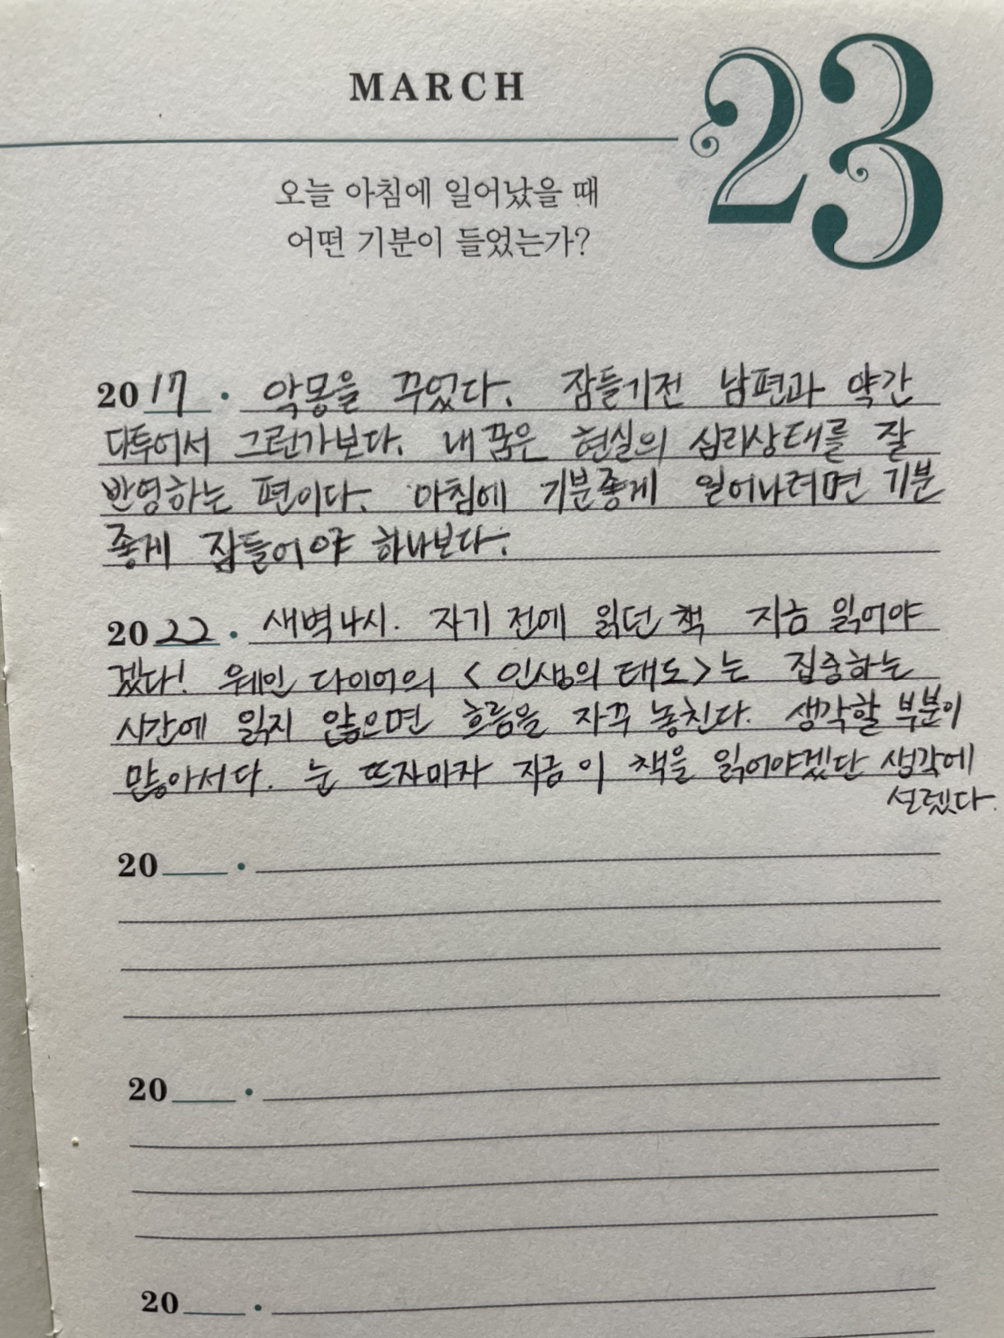 MARCH
23
오늘 아침에 일어났을 때
어떤 기분이 들었는가?
2017 · 악몽을 꾸었다. 잠들기전 남편과 약간
다투어서 그런가보다. 내 꿈은 현실의 심리상태를 잘
반영하는 편이다. 아침에 기분좋게 일어나려면 기분
좋게 잠들어야 하나보다.
2022 · 새벽 4시. 자기 전에 읽던 책 지금 읽어야
겠다! 웨인 다이어의 <인생의 태도>는 집중하는
시간에 읽지 않으면 흐름을 자꾸 놓친다. 생각할 부분이
많아서다. 눈 뜨자마자 지금 이 책을 읽어야겠단 생각에
설렜다.
20 ·
20 ·
20 ·